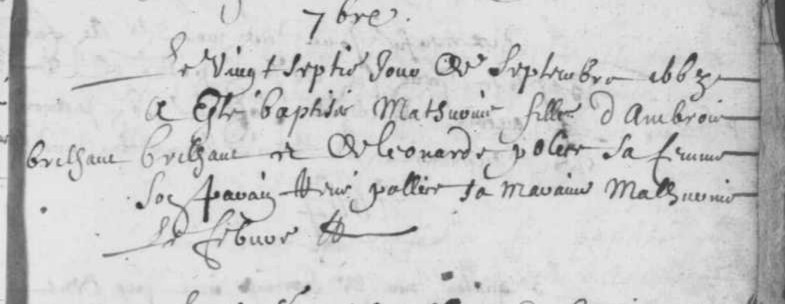 7bre.
Le Vingt septie Jour de Septembre 1663
A Esté baptisée Mathurine fille d'Ambroise
brilhant brilhant et de leonarde poliee sa femme
Son parain polliee sa maraine Mathurine
Le febure